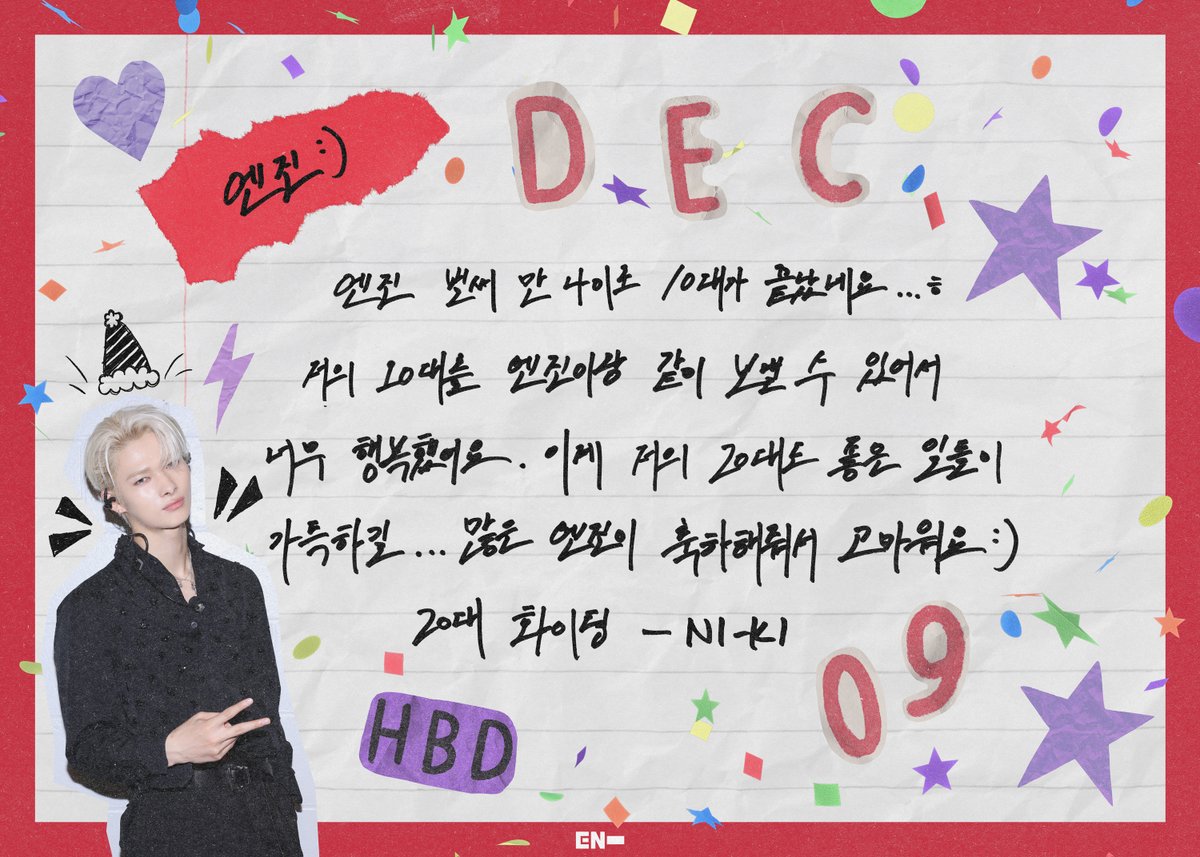 엔진:)
DEC
엔진 벌써 만 나이로 10대가 끝났네요...ㅎ
저의 10대를 엔진이랑 같이 보낼 수 있어서
너무 행복했어요. 이제 저의 20대도 좋은 일들이
가득하길... 많은 엔진이 축하해줘서 고마워요:)
20대 화이팅 - NI-KI
09
HBD
EN-